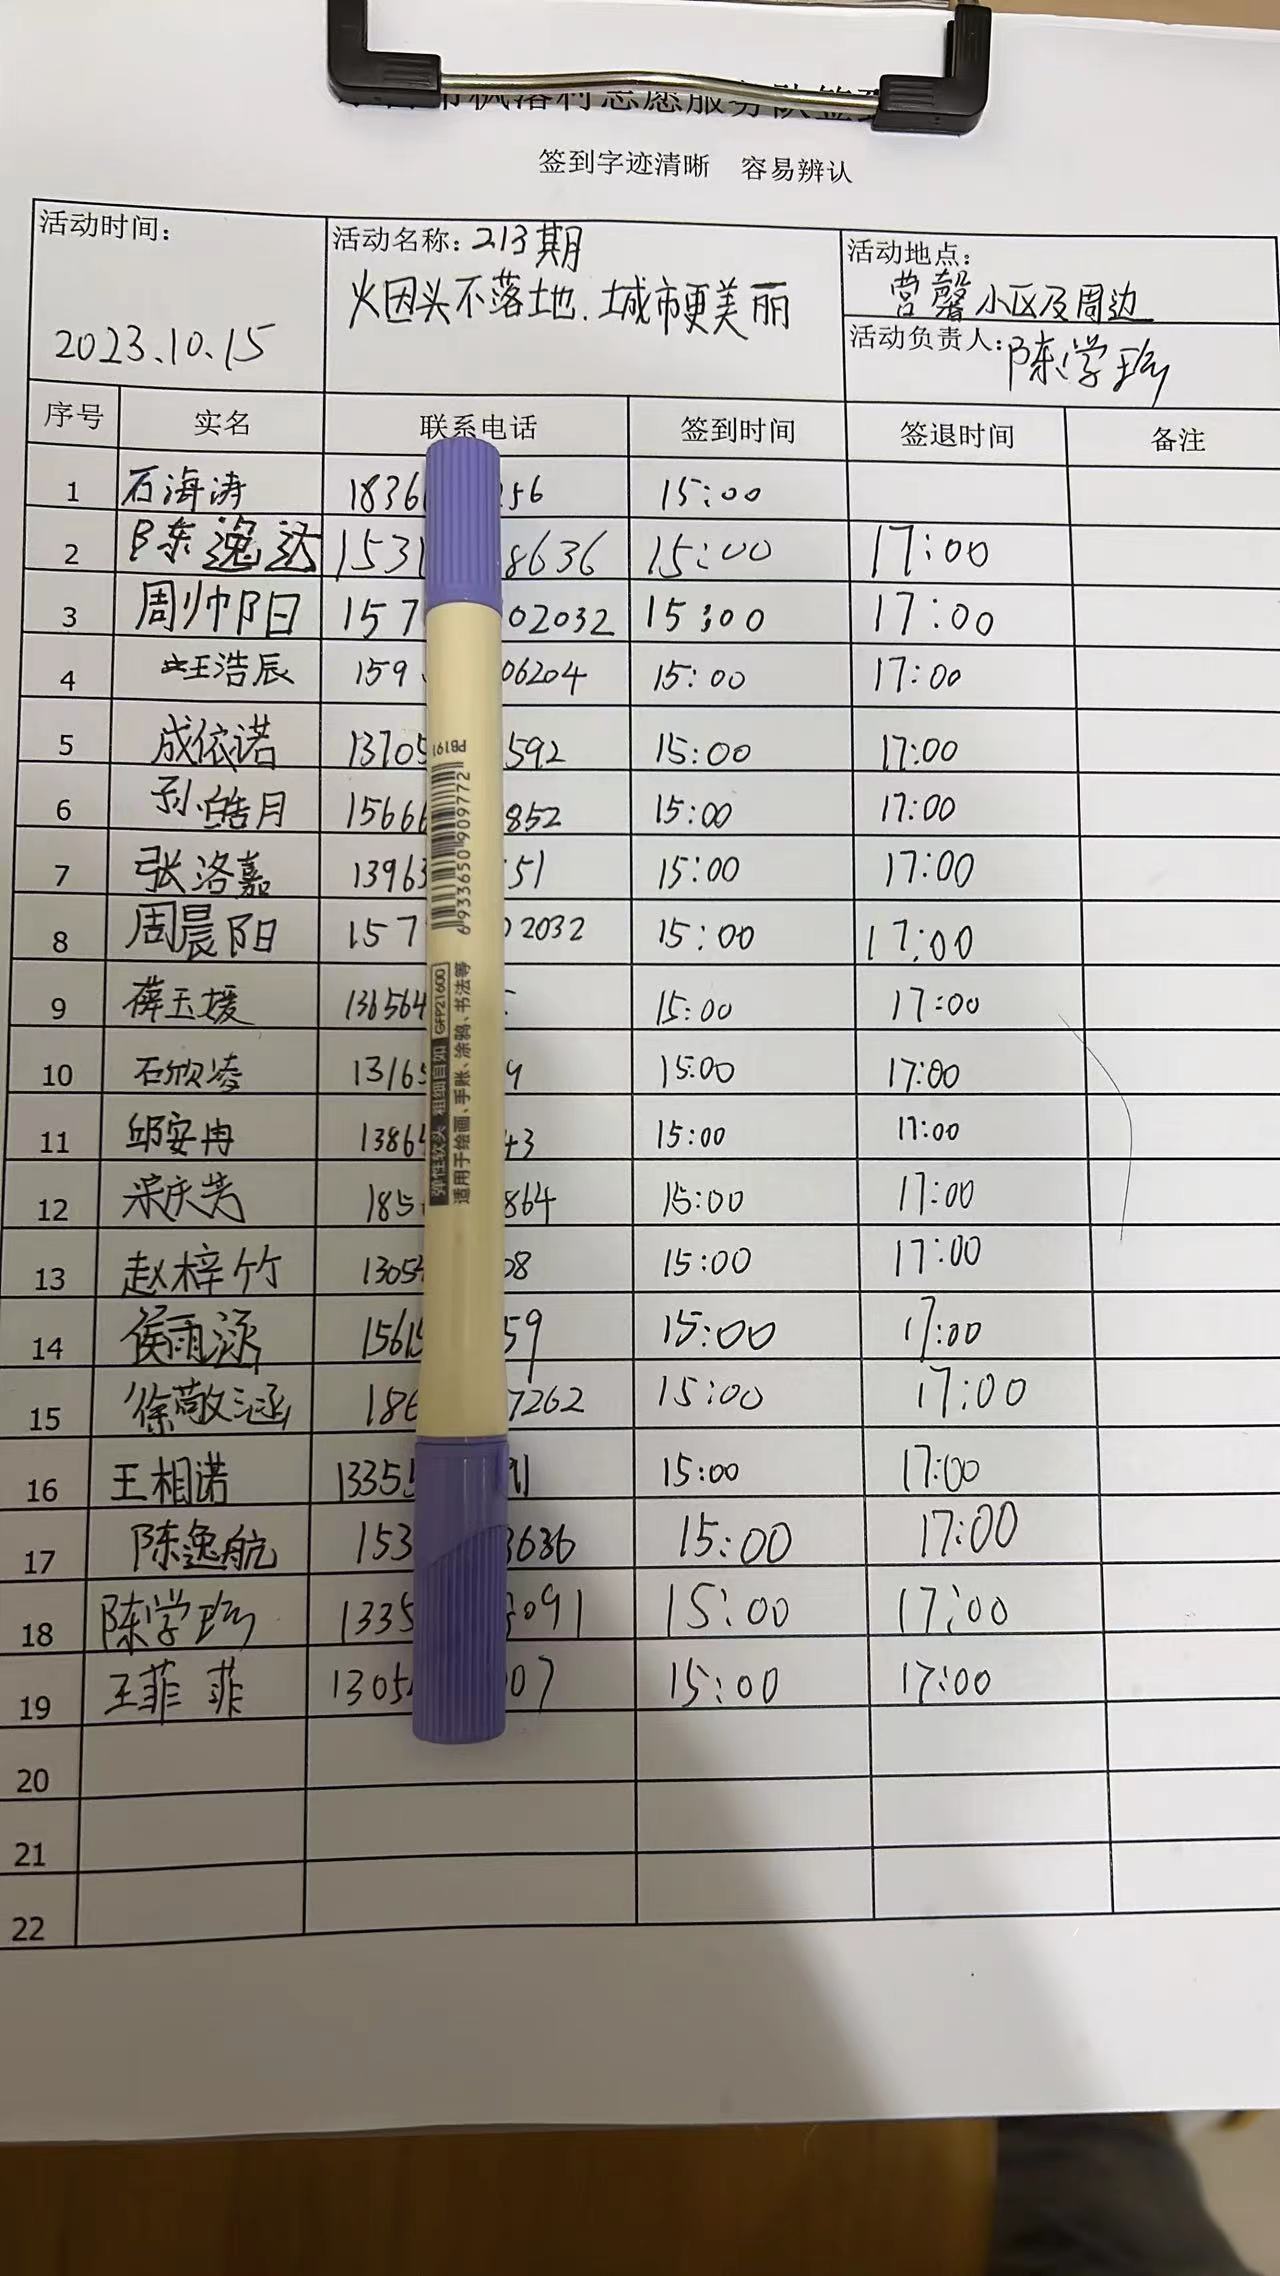 枫落村志愿服务队签到
签到字迹清晰 容易辨认
活动时间:
2023.10.15
活动名称: 213期
火因头不落地.城市更美丽
活动地点:
营馨小区及周边
活动负责人: 陈学珍
序号 实名 联系电话 签到时间 签退时间 备注
1 石海涛 1836 56 15:00
2 陈逸达 153 8636 15:00 17:00
3 周帅阳 157 02032 15:00 17:00
4 王浩辰 159 06204 15:00 17:00
5 成依诺 13705 592 15:00 17:00
6 孙皓月 15666 852 15:00 17:00
7 张洛嘉 13963 51 15:00 17:00
8 周晨阳 157 2032 15:00 17:00
9 薛玉媛 136564 15:00 17:00
10 石欣凌 13165 9 15:00 17:00
11 邱安冉 1386 43 15:00 17:00
12 梁庆芳 185 864 15:00 17:00
13 赵梓竹 1305 08 15:00 17:00
14 侯雨涵 1561 59 15:00 17:00
15 徐敬涵 186 7262 15:00 17:00
16 王相诺 1335 91 15:00 17:00
17 陈逸航 153 3636 15:00 17:00
18 陈学珍 1335 091 15:00 17:00
19 王菲菲 1305 07 15:00 17:00
20
21
22
PB191
6933650909772
弹性软头 粗细自如 GFP21600
适用于绘画、手账、涂鸦、书法等